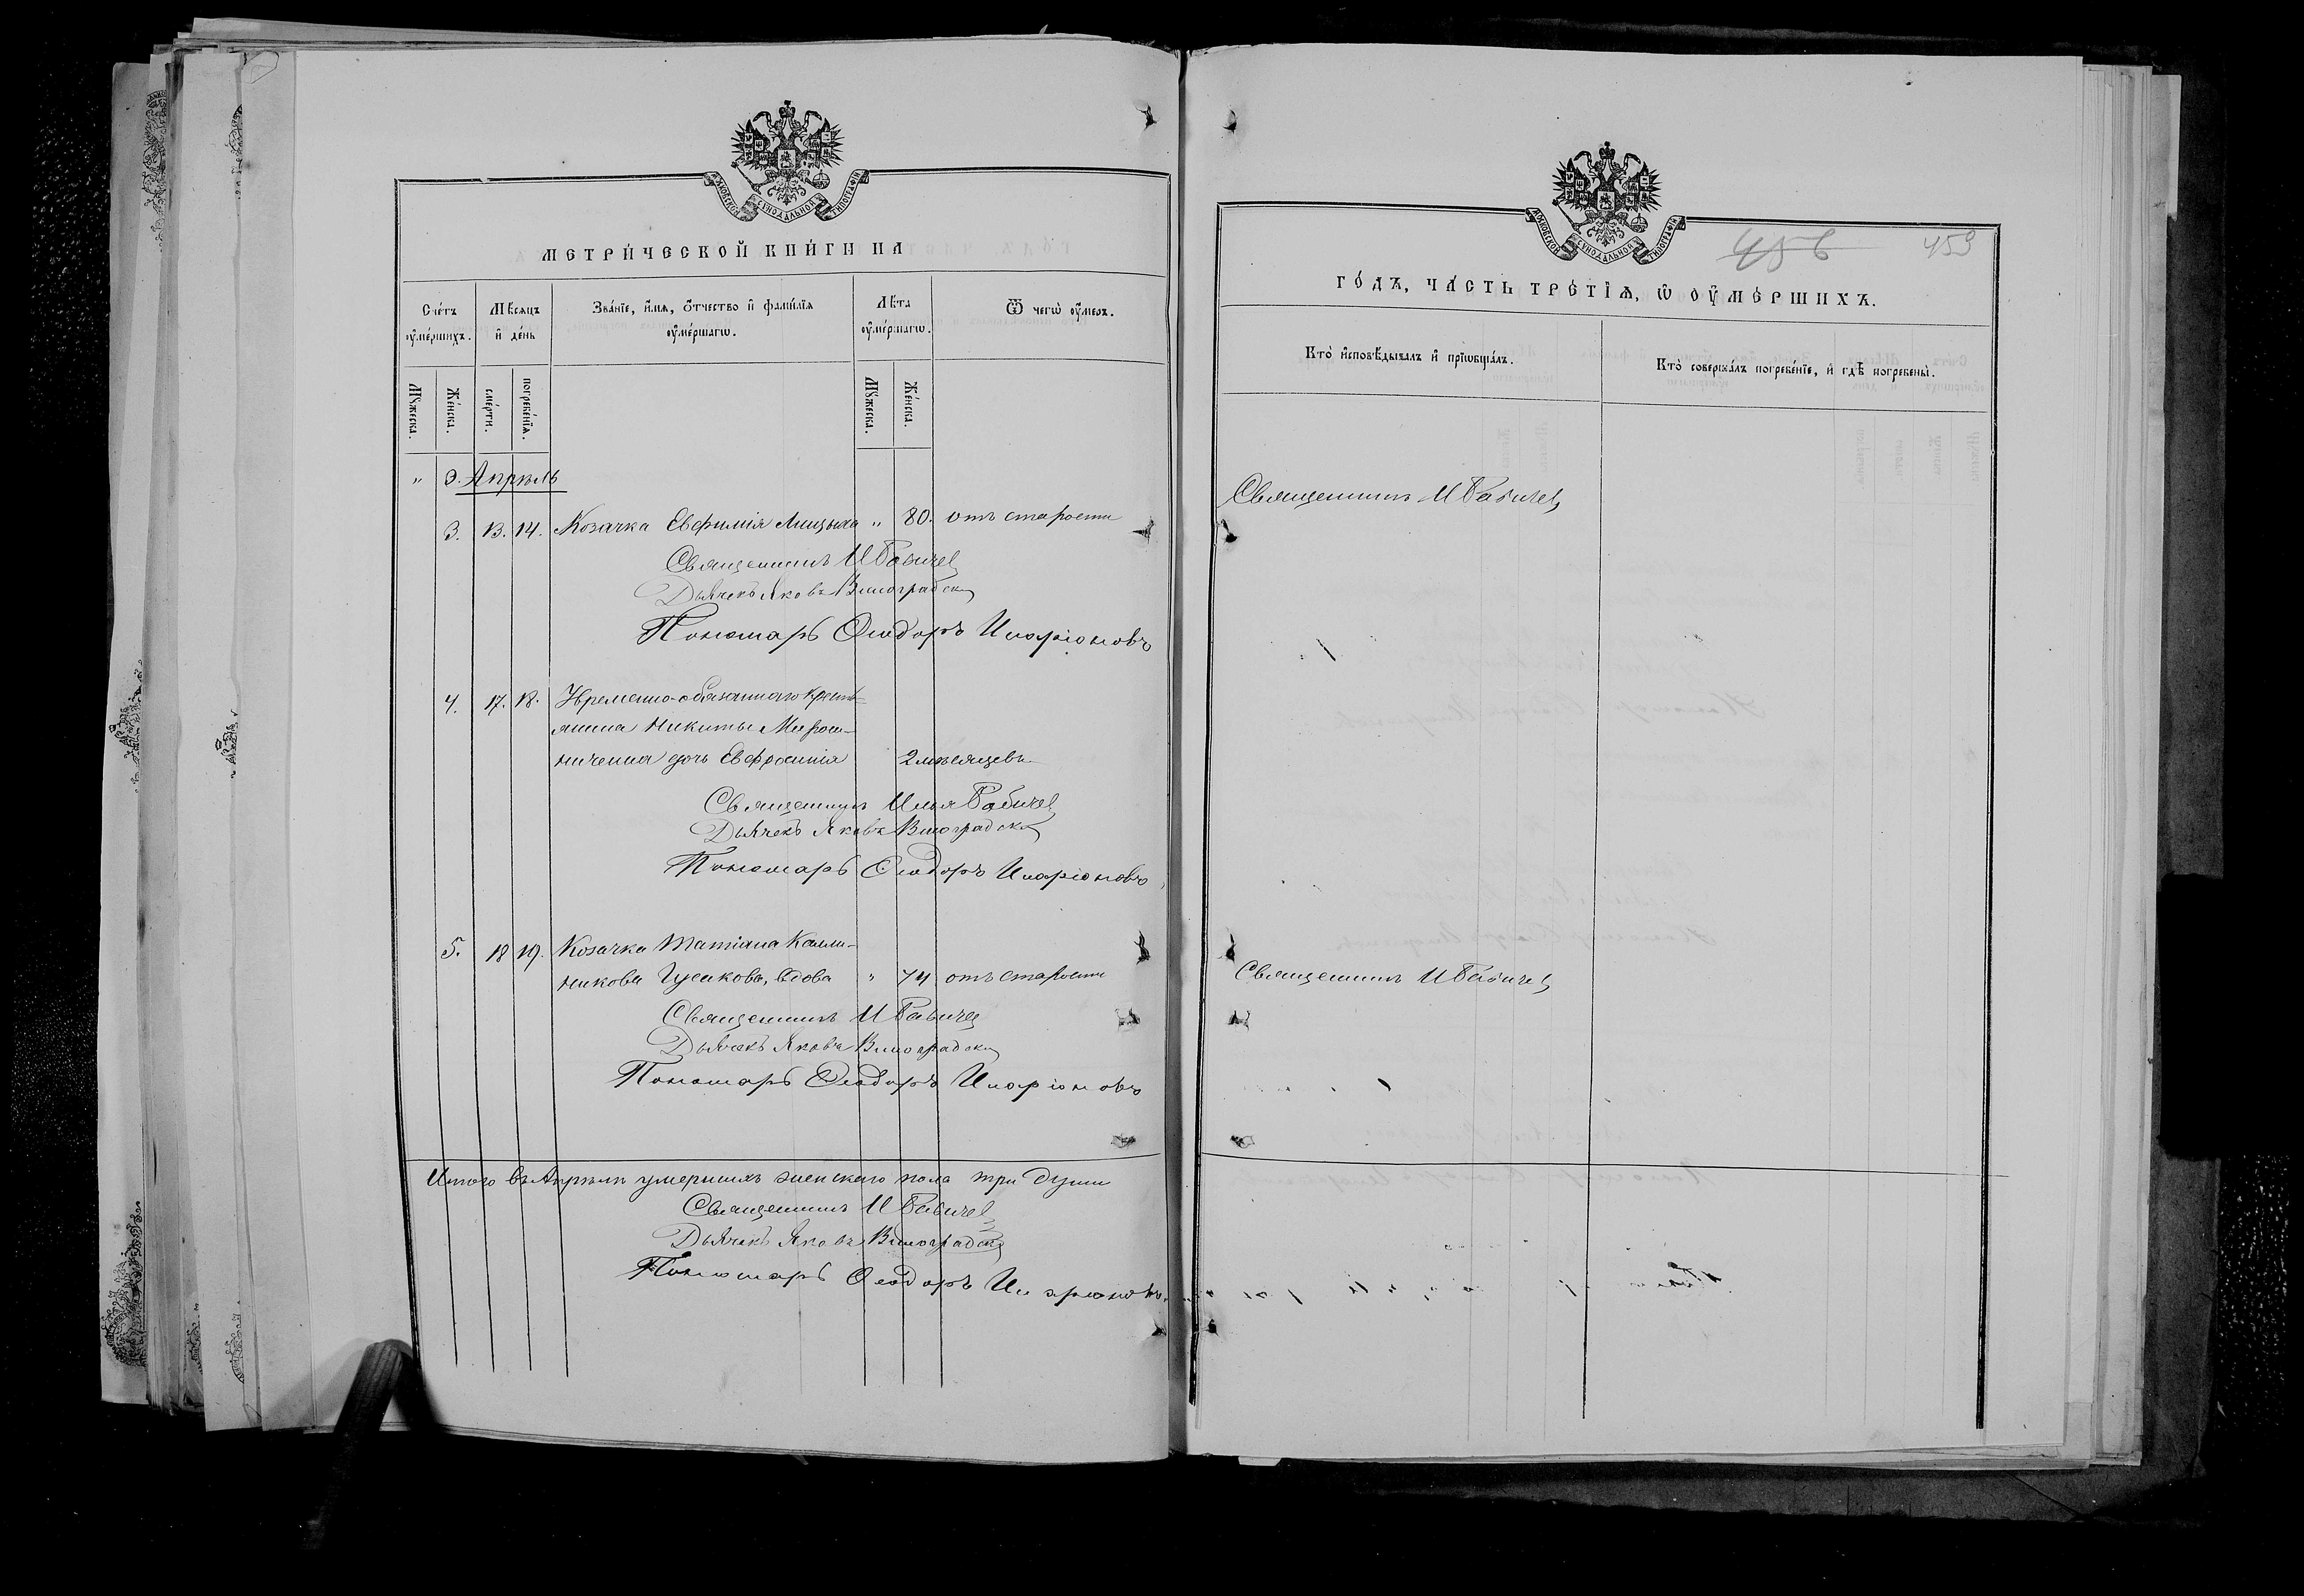 МЕТРИ́ЧЕСКОЙ КНИ́ГИ НА
Сче́тъ ᲂу҆ме́ршихъ.
Мѣ́сяцъ и҆ де́нь
Зва́нїе, и҆́мѧ, ѻ҆́тчество и҆ фами́лїѧ ᲂу҆ме́ршагѡ.
Лѣ́та ᲂу҆ме́ршагѡ.
Ѿ чегѡ̀ ᲂу҆́меръ.
Мꙋ́жеска.
Же́нска.
сме́рти.
погребе́нїѧ.
Мꙋ́жеска.
Же́нска.
" 3. Апрѣль
3. 13. 14. Козачка Евфимія " 80. отъ старости
Священникъ И Бабичев
Дьячекъ Яковъ Виноградскій
Пономарь Ѳеодоръ Иларіоновъ
4. 17. 18. Временно-обязаннаго кресть-
янина Никиты Мирош-
ниченка дочь Евфросинія 2 мѣсяцевъ
Священникъ Илья Бабичев
Дьячекъ Яковъ Виноградскій
Пономарь Ѳеодоръ Иларіоновъ
5. 18 19. Козачка Татіана Калли-
никова Гусакова, вдова " 74 отъ старости
Священникъ И Бабичев
Дьячекъ Яковъ Виноградскій
Пономарь Ѳеодоръ Иларіоновъ
Итого въ Апрѣлѣ умершихъ женскаго пола три души
Священникъ И Бабичев
Дьячекъ Яковъ Виноградскій
Пономарь Ѳеодоръ Иларіоновъ
456 459
ГО́ДЪ, ЧА́СТЬ ТРЕ́ТЇѦ, Ѡ҆ ОУ҆МЕ́РШИХЪ.
Кто̀ и҆сповѣ́дывалъ и҆ прїѡбща́лъ.
Кто̀ соверша́лъ погребе́нїе, и҆ гдѣ̀ погребены̀.
Священникъ И Бабичев
Священникъ И Бабичев